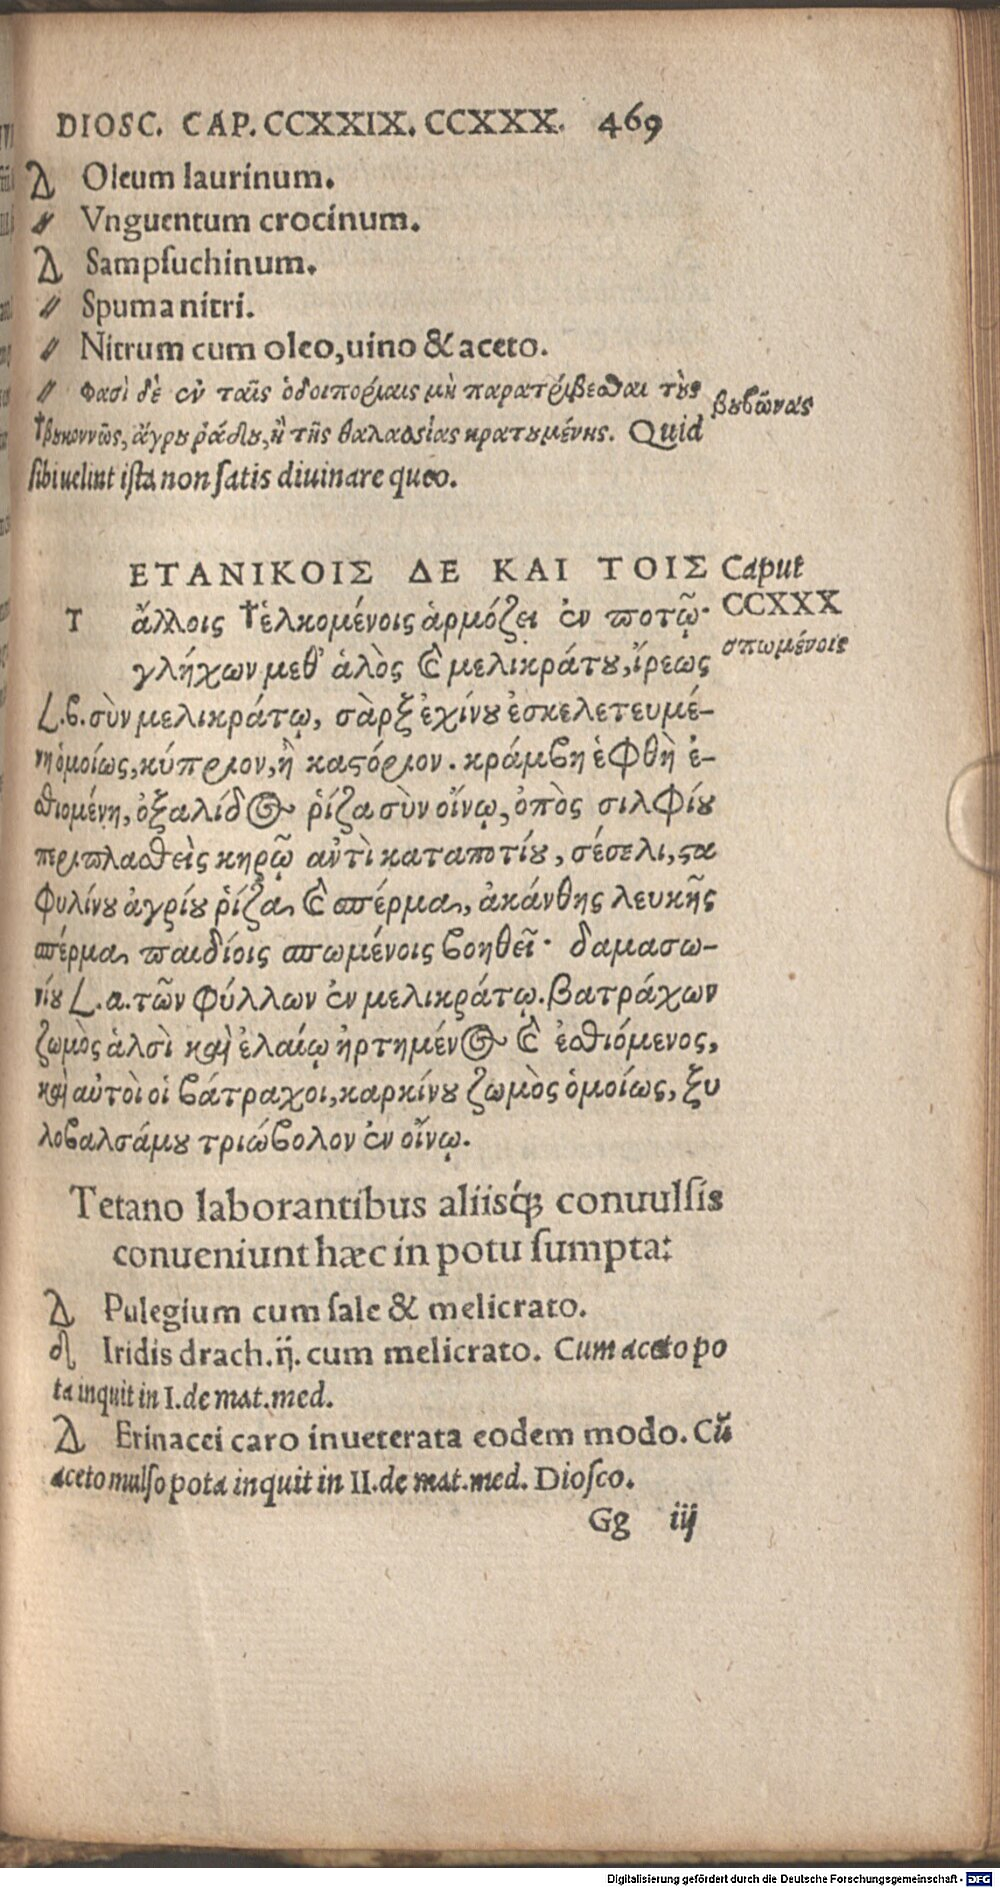 DIOSC. CAP. CCXXIX. CCXXX. 469
Δ Oleum laurinum.
〃 Vnguentum crocinum.
Δ Sampsuchinum.
〃 Spuma nitri.
〃 Nitrum cum oleo, uino & aceto.
〃 Φασὶ δὲ ἐν ταῖς ὁδοιπορίαις μὴ παρατρίβεσθαι τοὺς βουβῶνας
†βουκοννῶς, ἄγρου ῥάδιου, ἢ τῆς θαλασσίας κρατουμένης. Quid
sibi uelint ista non satis diuinare queo.
ΕΤΑΝΙΚΟΙΣ ΔΕ ΚΑΙ ΤΟΙΣ Caput
Τ ἄλλοις †ἑλκομένοις ἁρμόζει ἐν ποτῷ· CCXXX
σπωμένοις
γλήχων μεθ' ἁλὸς καὶ μελικράτου, ἴρεως
L. β. σὺν μελικράτῳ, σὰρξ ἐχίνου ἐσκελετευμέ-
νη ὁμοίως, κύπριον, ἢ καστόριον. κράμβη ἑφθὴ ἐ-
σθιομένη, ὀξαλίδος ῥίζα σὺν οἴνῳ, ὀπὸς σιλφίου
περιπλασθεὶς κηρῷ ἀντὶ καταποτίου, σέσελι, στα
φυλίνου ἀγρίου ῥίζα καὶ σπέρμα, ἀκάνθης λευκῆς
σπέρμα παιδίοις σπωμένοις βοηθεῖ· δαμασω-
νίου L. α. τῶν φύλλων ἐν μελικράτῳ. βατράχων
ζωμὸς ἁλσὶ καὶ ἐλαίῳ ἠρτημένος καὶ ἐσθιόμενος,
καὶ αὐτοὶ οἱ βάτραχοι, καρκίνου ζωμὸς ὁμοίως, ξυ
λοβαλσάμου τριώβολον ἐν οἴνῳ.
Tetano laborantibus aliisq́ꝫ conuulsis
conueniunt hæc in potu sumpta:
Δ Pulegium cum sale & melicrato.
δ Iridis drach. ij. cum melicrato. Cum aceto po
ta inquit in I. de mat. med.
Δ Erinacei caro inueterata eodem modo. Cū
aceto mulso pota inquit in II. de mat. med. Diosco.
Gg iij
Digitalisierung gefördert durch die Deutsche Forschungsgemeinschaft - DFG